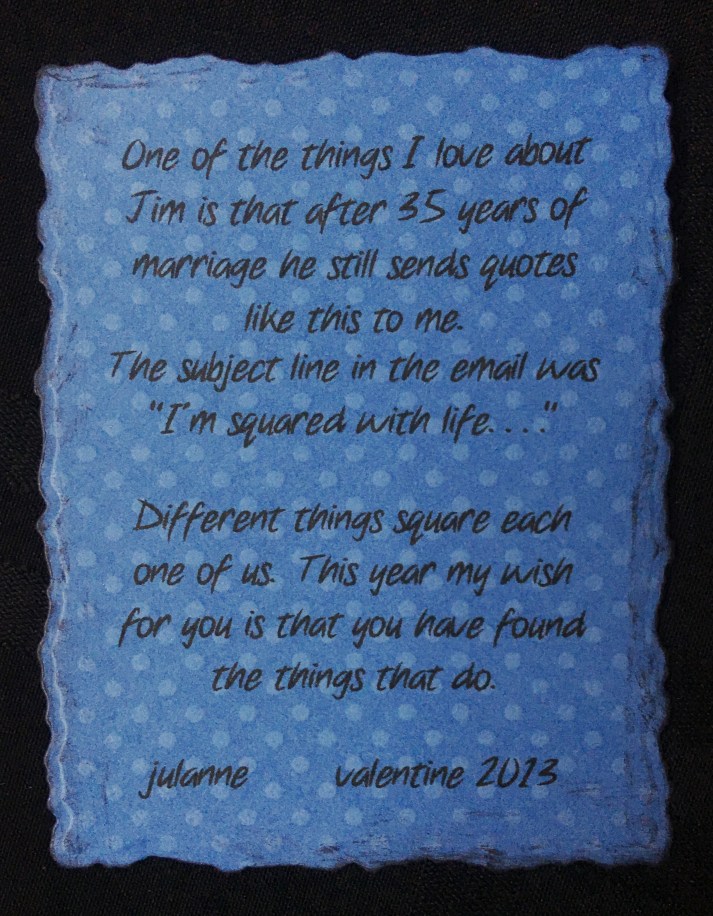 One of the things I love about
Jim is that after 35 years of
marriage he still sends quotes
like this to me.
The subject line in the email was
"I'm squared with life. . . ."
Different things square each
one of us. This year my wish
for you is that you have found
the things that do.
julanne valentine 2013